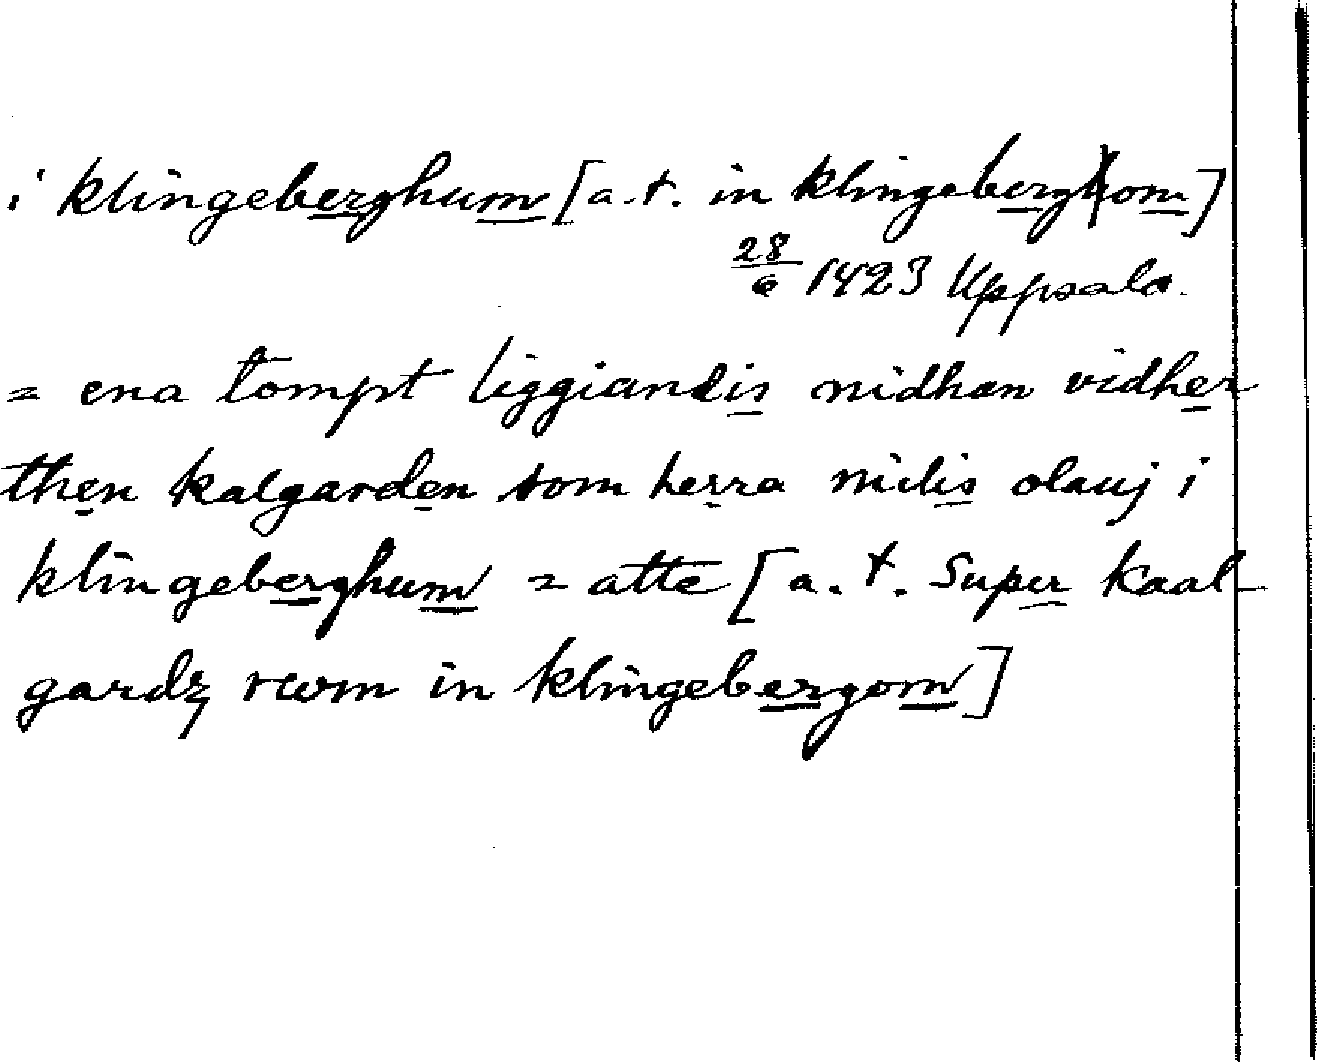 i klingeberghum [a.t. in klingebergom]
28/6 1423 Uppsala.
= ena tompt liggiandis nidhan vidher
then kalgarden som herra niclis olauj i
klingeberghum = atte [a.t. Super kaal-
gardz rwm in klingebergom]